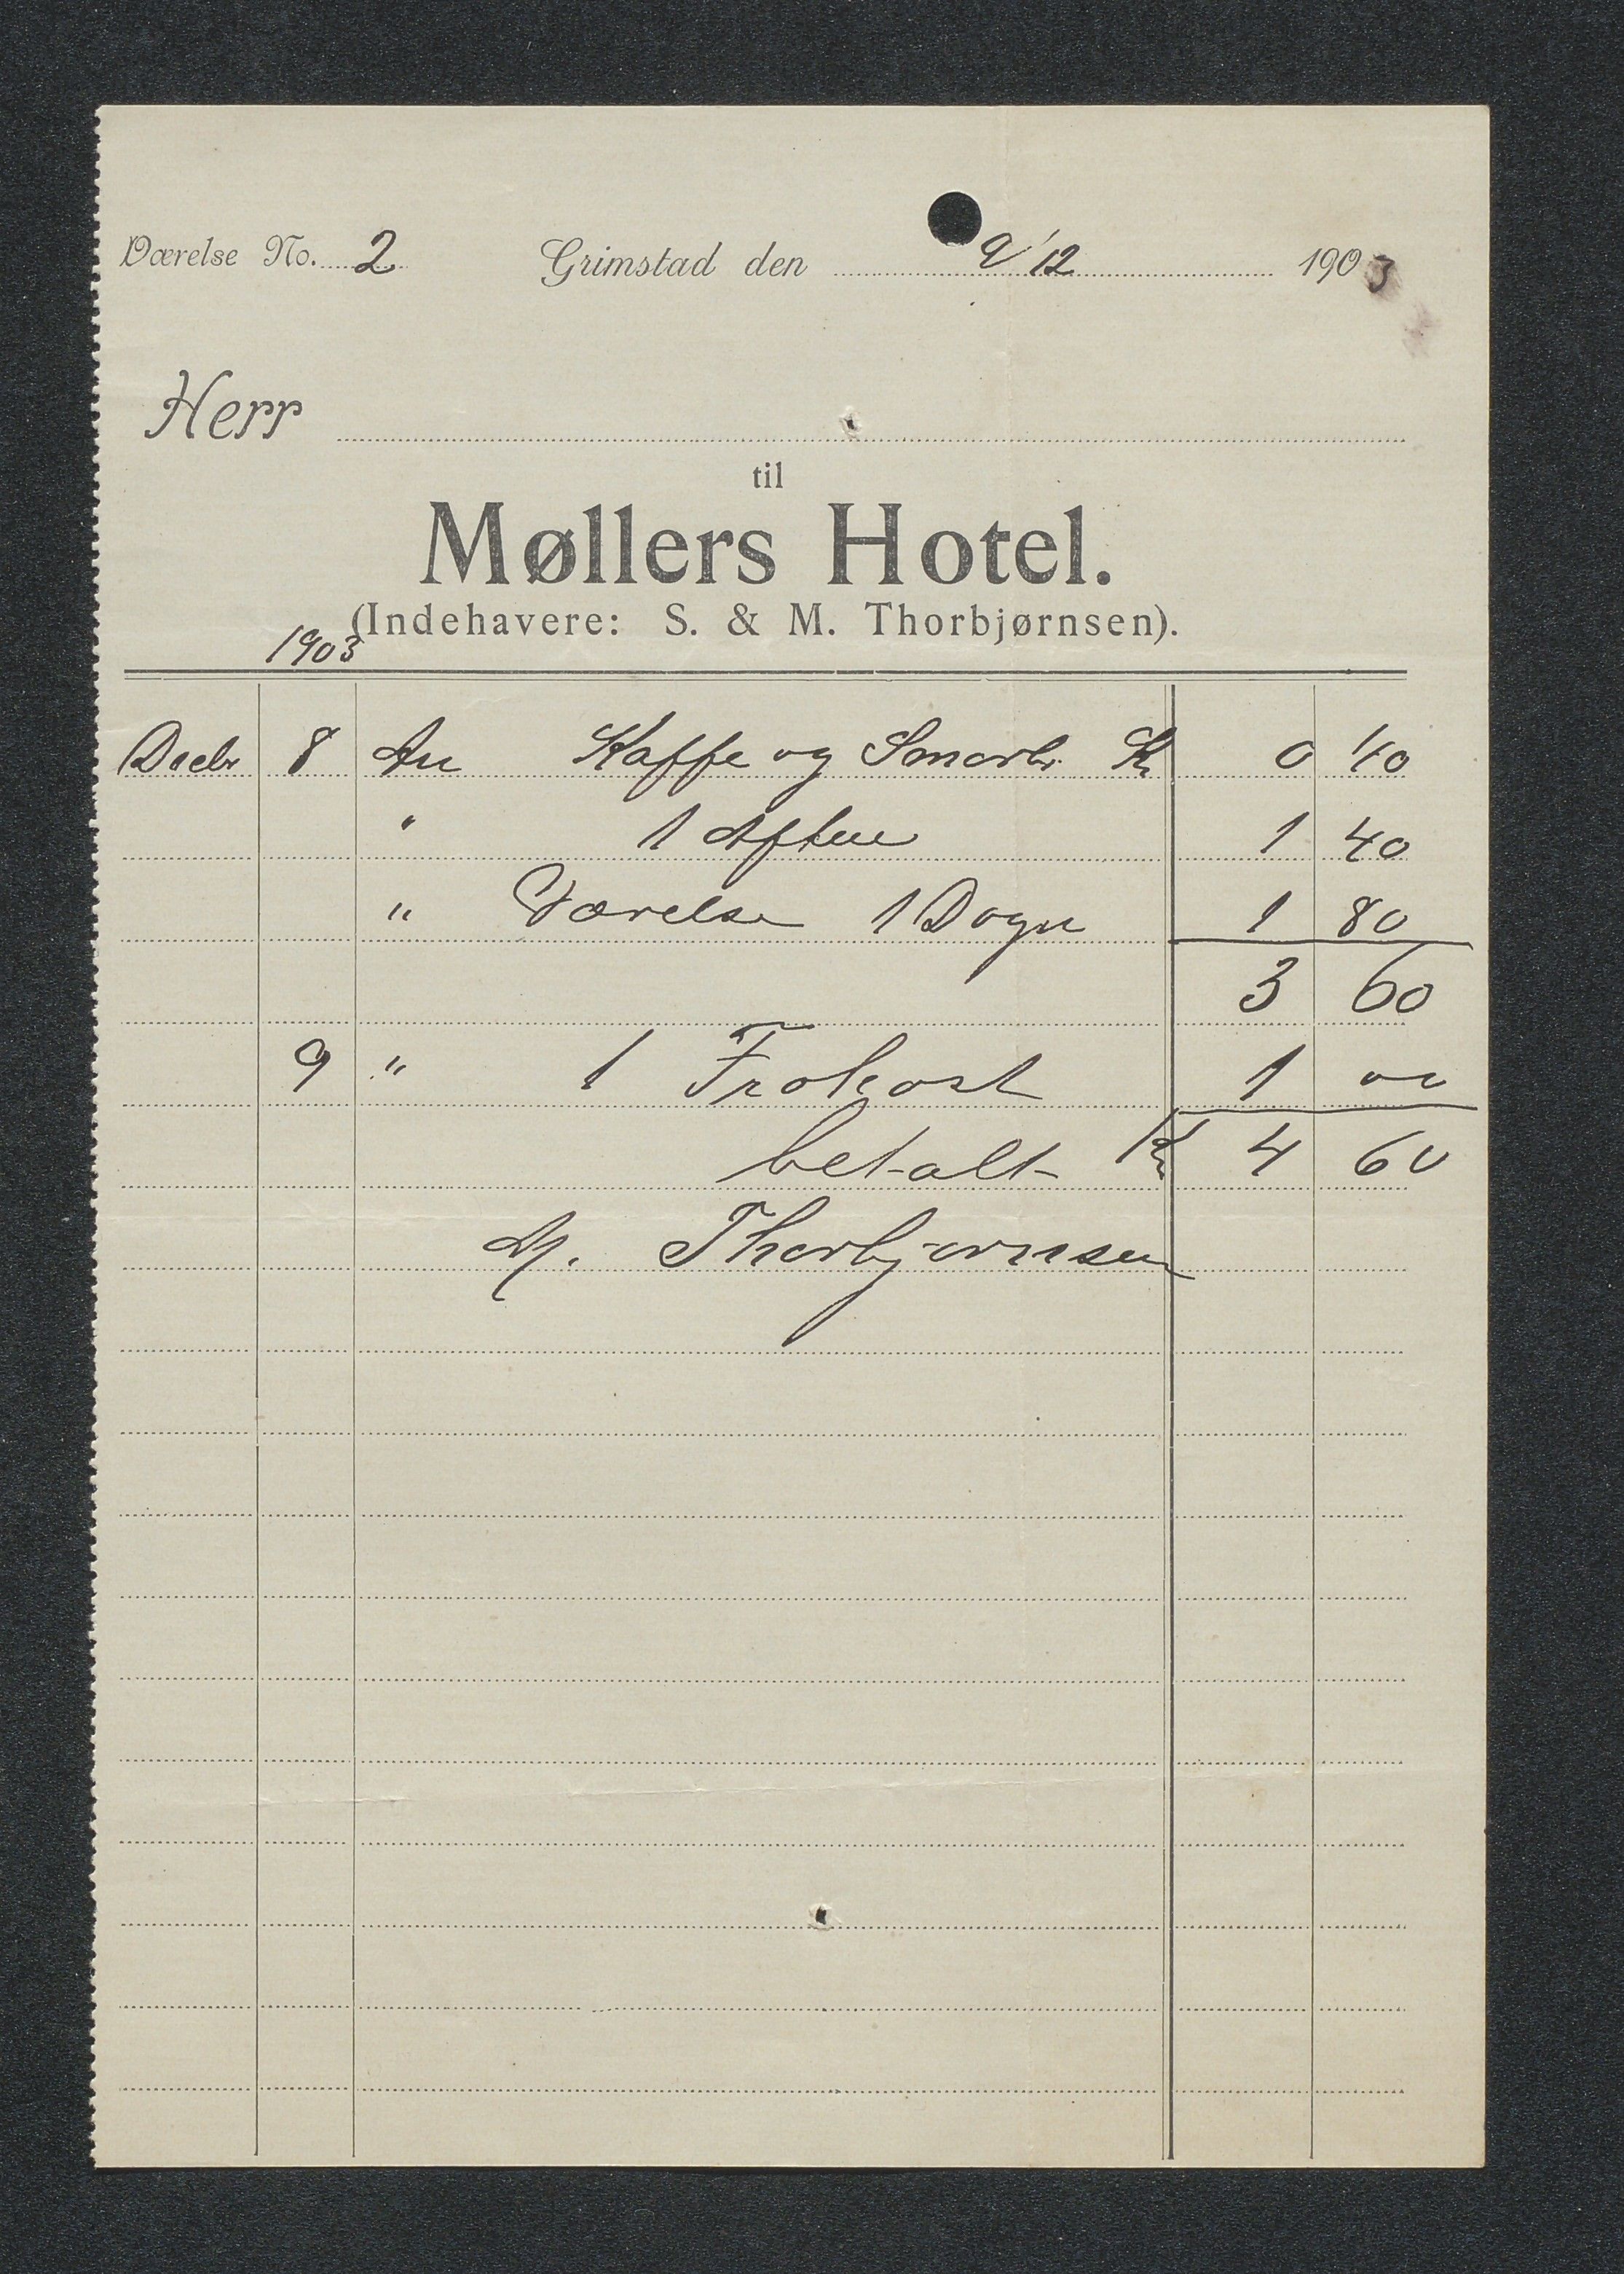 Værelse No. 2 Grimstad den 9/12 1903
Herr
til
Møllers Hotel.
(Indehavere: S. & M. Thorbjørnsen).
1903
Decbr 8 An Kaffe og Smørbr. Kr 0 40
" 1 Aften 1 40
" Værelse 1 Døgn 1 80
3 60
9 " 1 Frokost 1 00
betalt Kr 4 60
M. Thorbjørnsen